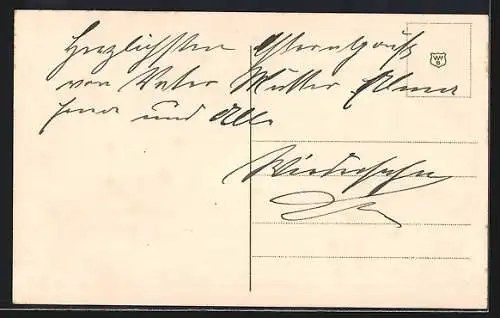 Herzlichsten Ostergruß
von Vater Mutter Elma
und Alle
Wiedersehn